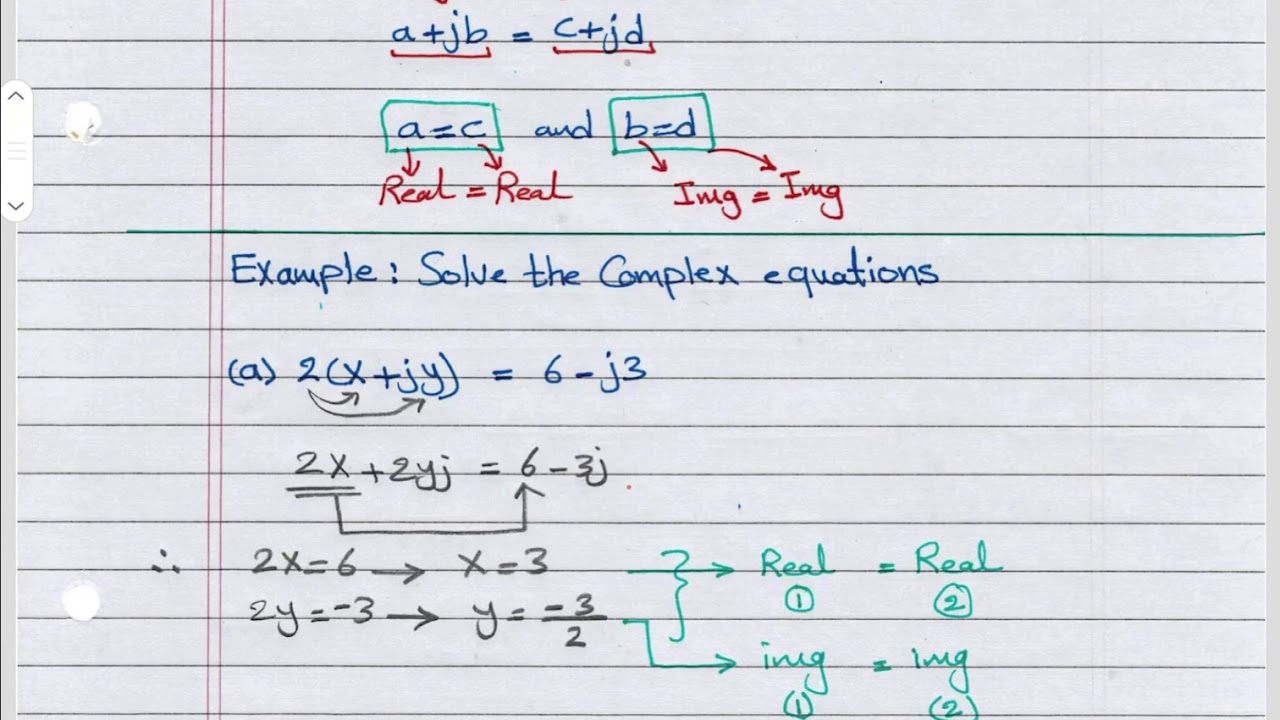 a+jb = c+jd
a=c and b=d
Real = Real Img = Img
Example: Solve the Complex equations
(a) 2(x+jy) = 6-j3
2x+2yj = 6-3j
∴ 2x=6 → x=3 → Real = Real
① ②
2y=-3 → y=-3/2
→ img = img
① ②